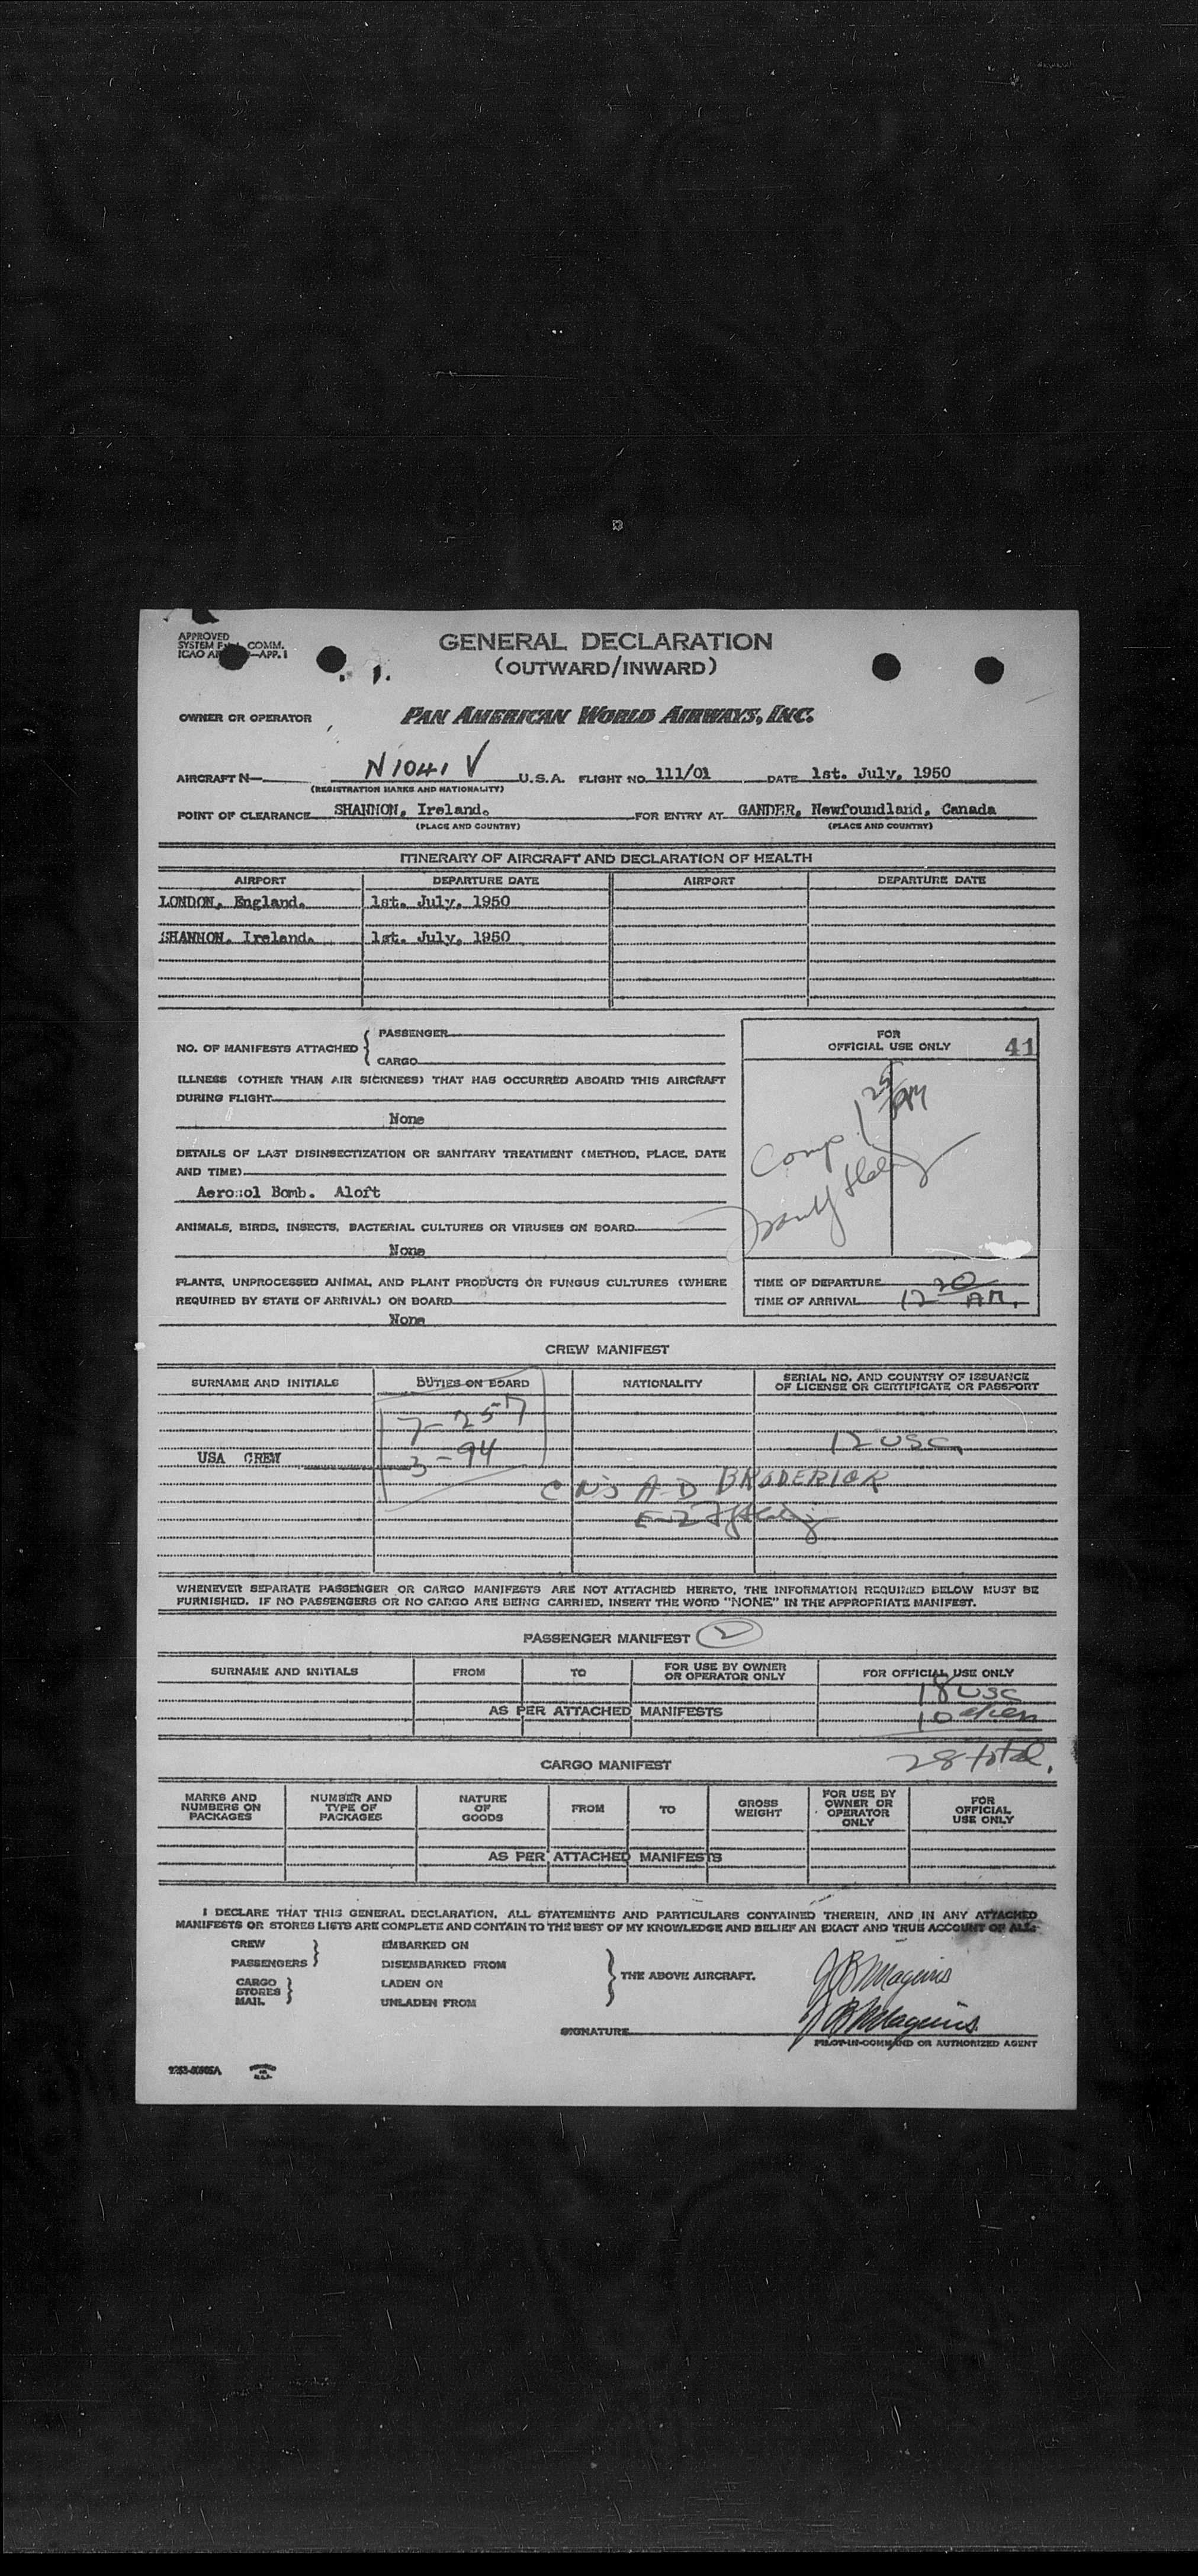 APPROVED
SYSTEM COMM.
ICAO —APP. 1
GENERAL DECLARATION
(OUTWARD/INWARD)
OWNER OR OPERATOR PAN AMERICAN WORLD AIRWAYS, INC.
AIRCRAFT N— N1041V U.S.A. FLIGHT NO. 111/01 DATE 1st. July, 1950
(REGISTRATION MARKS AND NATIONALITY)
POINT OF CLEARANCE SHANNON, Ireland. FOR ENTRY AT GANDER, Newfoundland, Canada
(PLACE AND COUNTRY) (PLACE AND COUNTRY)
ITINERARY OF AIRCRAFT AND DECLARATION OF HEALTH
AIRPORT DEPARTURE DATE AIRPORT DEPARTURE DATE
LONDON, England. 1st. July, 1950
SHANNON, Ireland. 1st. July, 1950
NO. OF MANIFESTS ATTACHED { PASSENGER
CARGO
FOR
OFFICIAL USE ONLY 41
ILLNESS (OTHER THAN AIR SICKNESS) THAT HAS OCCURRED ABOARD THIS AIRCRAFT
DURING FLIGHT
None
DETAILS OF LAST DISINSECTIZATION OR SANITARY TREATMENT (METHOD, PLACE, DATE
AND TIME)
Aerosol Bomb. Aloft
Comp 1 25 AM
ANIMALS, BIRDS, INSECTS, BACTERIAL CULTURES OR VIRUSES ON BOARD
None
PLANTS, UNPROCESSED ANIMAL AND PLANT PRODUCTS OR FUNGUS CULTURES (WHERE
REQUIRED BY STATE OF ARRIVAL) ON BOARD
None
TIME OF DEPARTURE
TIME OF ARRIVAL 12 20 AM.
CREW MANIFEST
SURNAME AND INITIALS DUTIES ON BOARD NATIONALITY SERIAL NO. AND COUNTRY OF ISSUANCE
OF LICENSE OR CERTIFICATE OR PASSPORT
7-257
12 USC
USA CREW 3-94
BRODERICK
WHENEVER SEPARATE PASSENGER OR CARGO MANIFESTS ARE NOT ATTACHED HERETO, THE INFORMATION REQUIRED BELOW MUST BE
FURNISHED. IF NO PASSENGERS OR NO CARGO ARE BEING CARRIED, INSERT THE WORD "NONE" IN THE APPROPRIATE MANIFEST.
PASSENGER MANIFEST 2
SURNAME AND INITIALS FROM TO FOR USE BY OWNER
OR OPERATOR ONLY FOR OFFICIAL USE ONLY
18 USC
AS PER ATTACHED MANIFESTS 10 alien
28 total.
CARGO MANIFEST
MARKS AND
NUMBERS ON
PACKAGES NUMBER AND
TYPE OF
PACKAGES NATURE
OF
GOODS FROM TO GROSS
WEIGHT FOR USE BY
OWNER OR
OPERATOR
ONLY FOR
OFFICIAL
USE ONLY
AS PER ATTACHED MANIFESTS
I DECLARE THAT THIS GENERAL DECLARATION, ALL STATEMENTS AND PARTICULARS CONTAINED THEREIN, AND IN ANY ATTACHED
MANIFESTS OR STORES LISTS ARE COMPLETE AND CONTAIN TO THE BEST OF MY KNOWLEDGE AND BELIEF AN EXACT AND TRUE ACCOUNT OF ALL:
CREW
PASSENGERS }
CARGO
STORES
MAIL }
EMBARKED ON
DISEMBARKED FROM
LADEN ON
UNLADEN FROM
} THE ABOVE AIRCRAFT.
SIGNATURE
PILOT-IN-COMMAND OR AUTHORIZED AGENT